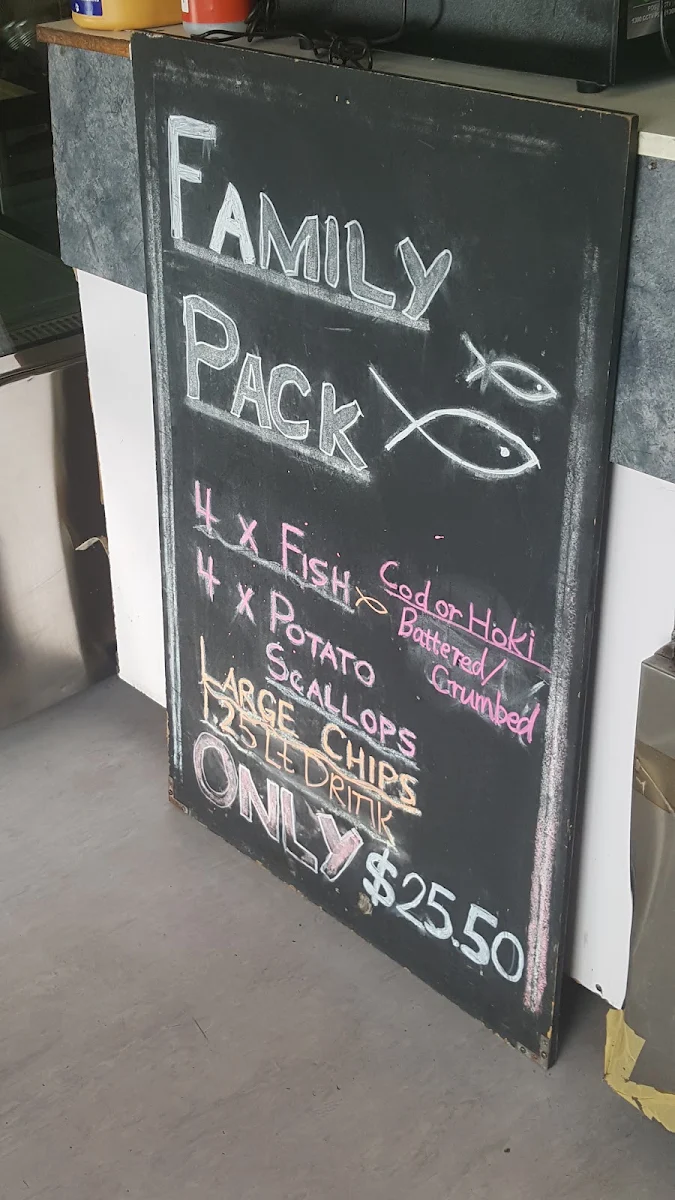 FAMILY
PACK
4 x FISH
Cod or Hoki
Battered/
Crumbed
4 x POTATO
SCALLOPS
LARGE CHIPS
1.25 Lt DRINK
ONLY $25.50